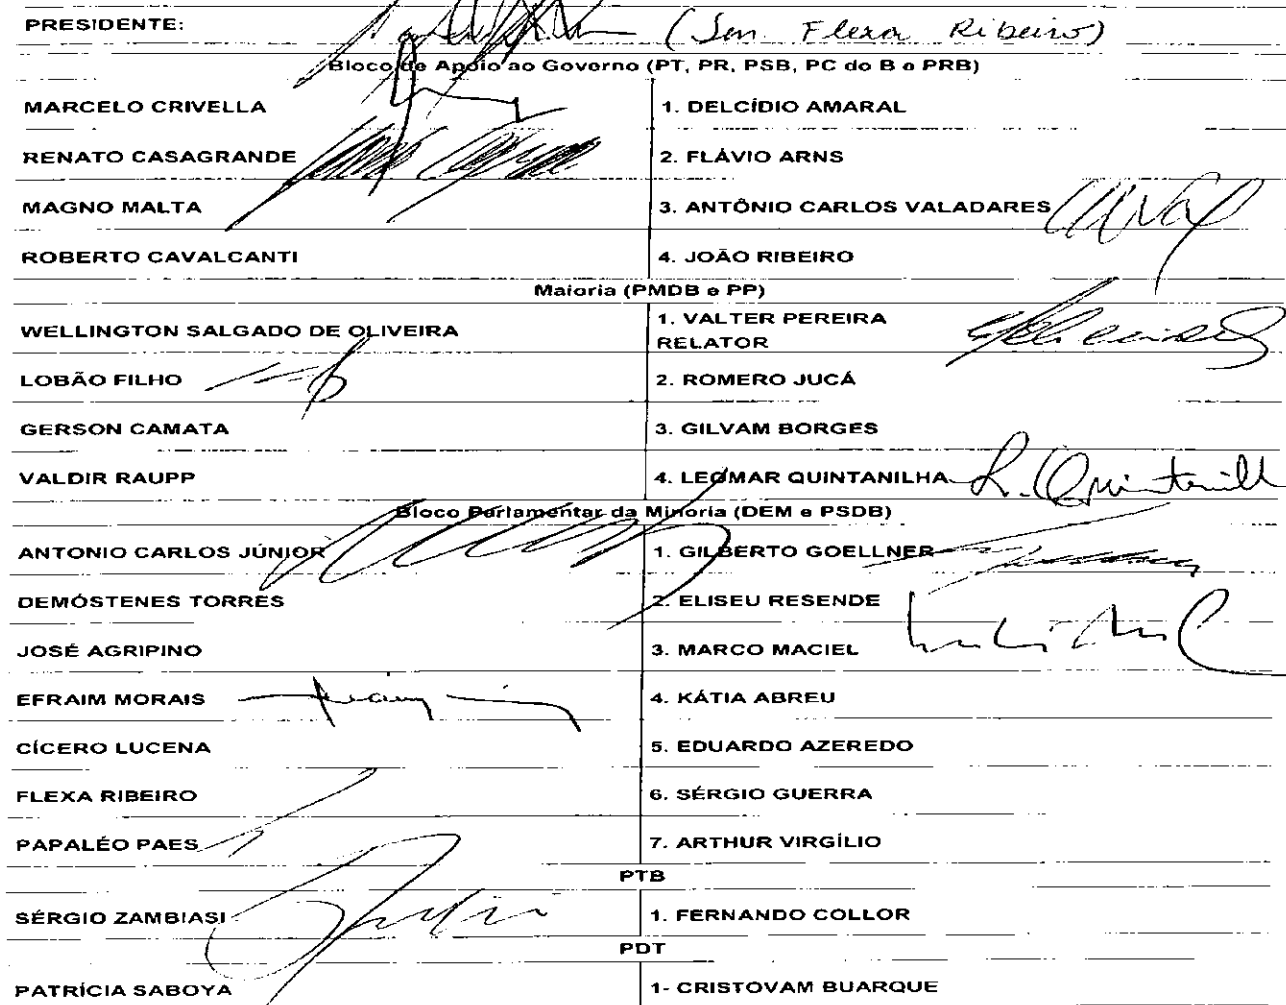 PRESIDENTE: (Sen Flexa Ribeiro)
Bloco de Apoio ao Governo (PT, PR, PSB, PC do B e PRB)
MARCELO CRIVELLA 1. DELCÍDIO AMARAL
RENATO CASAGRANDE 2. FLÁVIO ARNS
MAGNO MALTA 3. ANTÔNIO CARLOS VALADARES
ROBERTO CAVALCANTI 4. JOÃO RIBEIRO
Maioria (PMDB e PP)
WELLINGTON SALGADO DE OLIVEIRA 1. VALTER PEREIRA
RELATOR
LOBÃO FILHO 2. ROMERO JUCÁ
GERSON CAMATA 3. GILVAM BORGES
VALDIR RAUPP 4. LEOMAR QUINTANILHA
Bloco Parlamentar da Minoria (DEM e PSDB)
ANTONIO CARLOS JÚNIOR 1. GILBERTO GOELLNER
DEMÓSTENES TORRES 2. ELISEU RESENDE
JOSÉ AGRIPINO 3. MARCO MACIEL
EFRAIM MORAIS 4. KÁTIA ABREU
CÍCERO LUCENA 5. EDUARDO AZEREDO
FLEXA RIBEIRO 6. SÉRGIO GUERRA
PAPALÉO PAES 7. ARTHUR VIRGÍLIO
PTB
SÉRGIO ZAMBIASI 1. FERNANDO COLLOR
PDT
PATRÍCIA SABOYA 1- CRISTOVAM BUARQUE